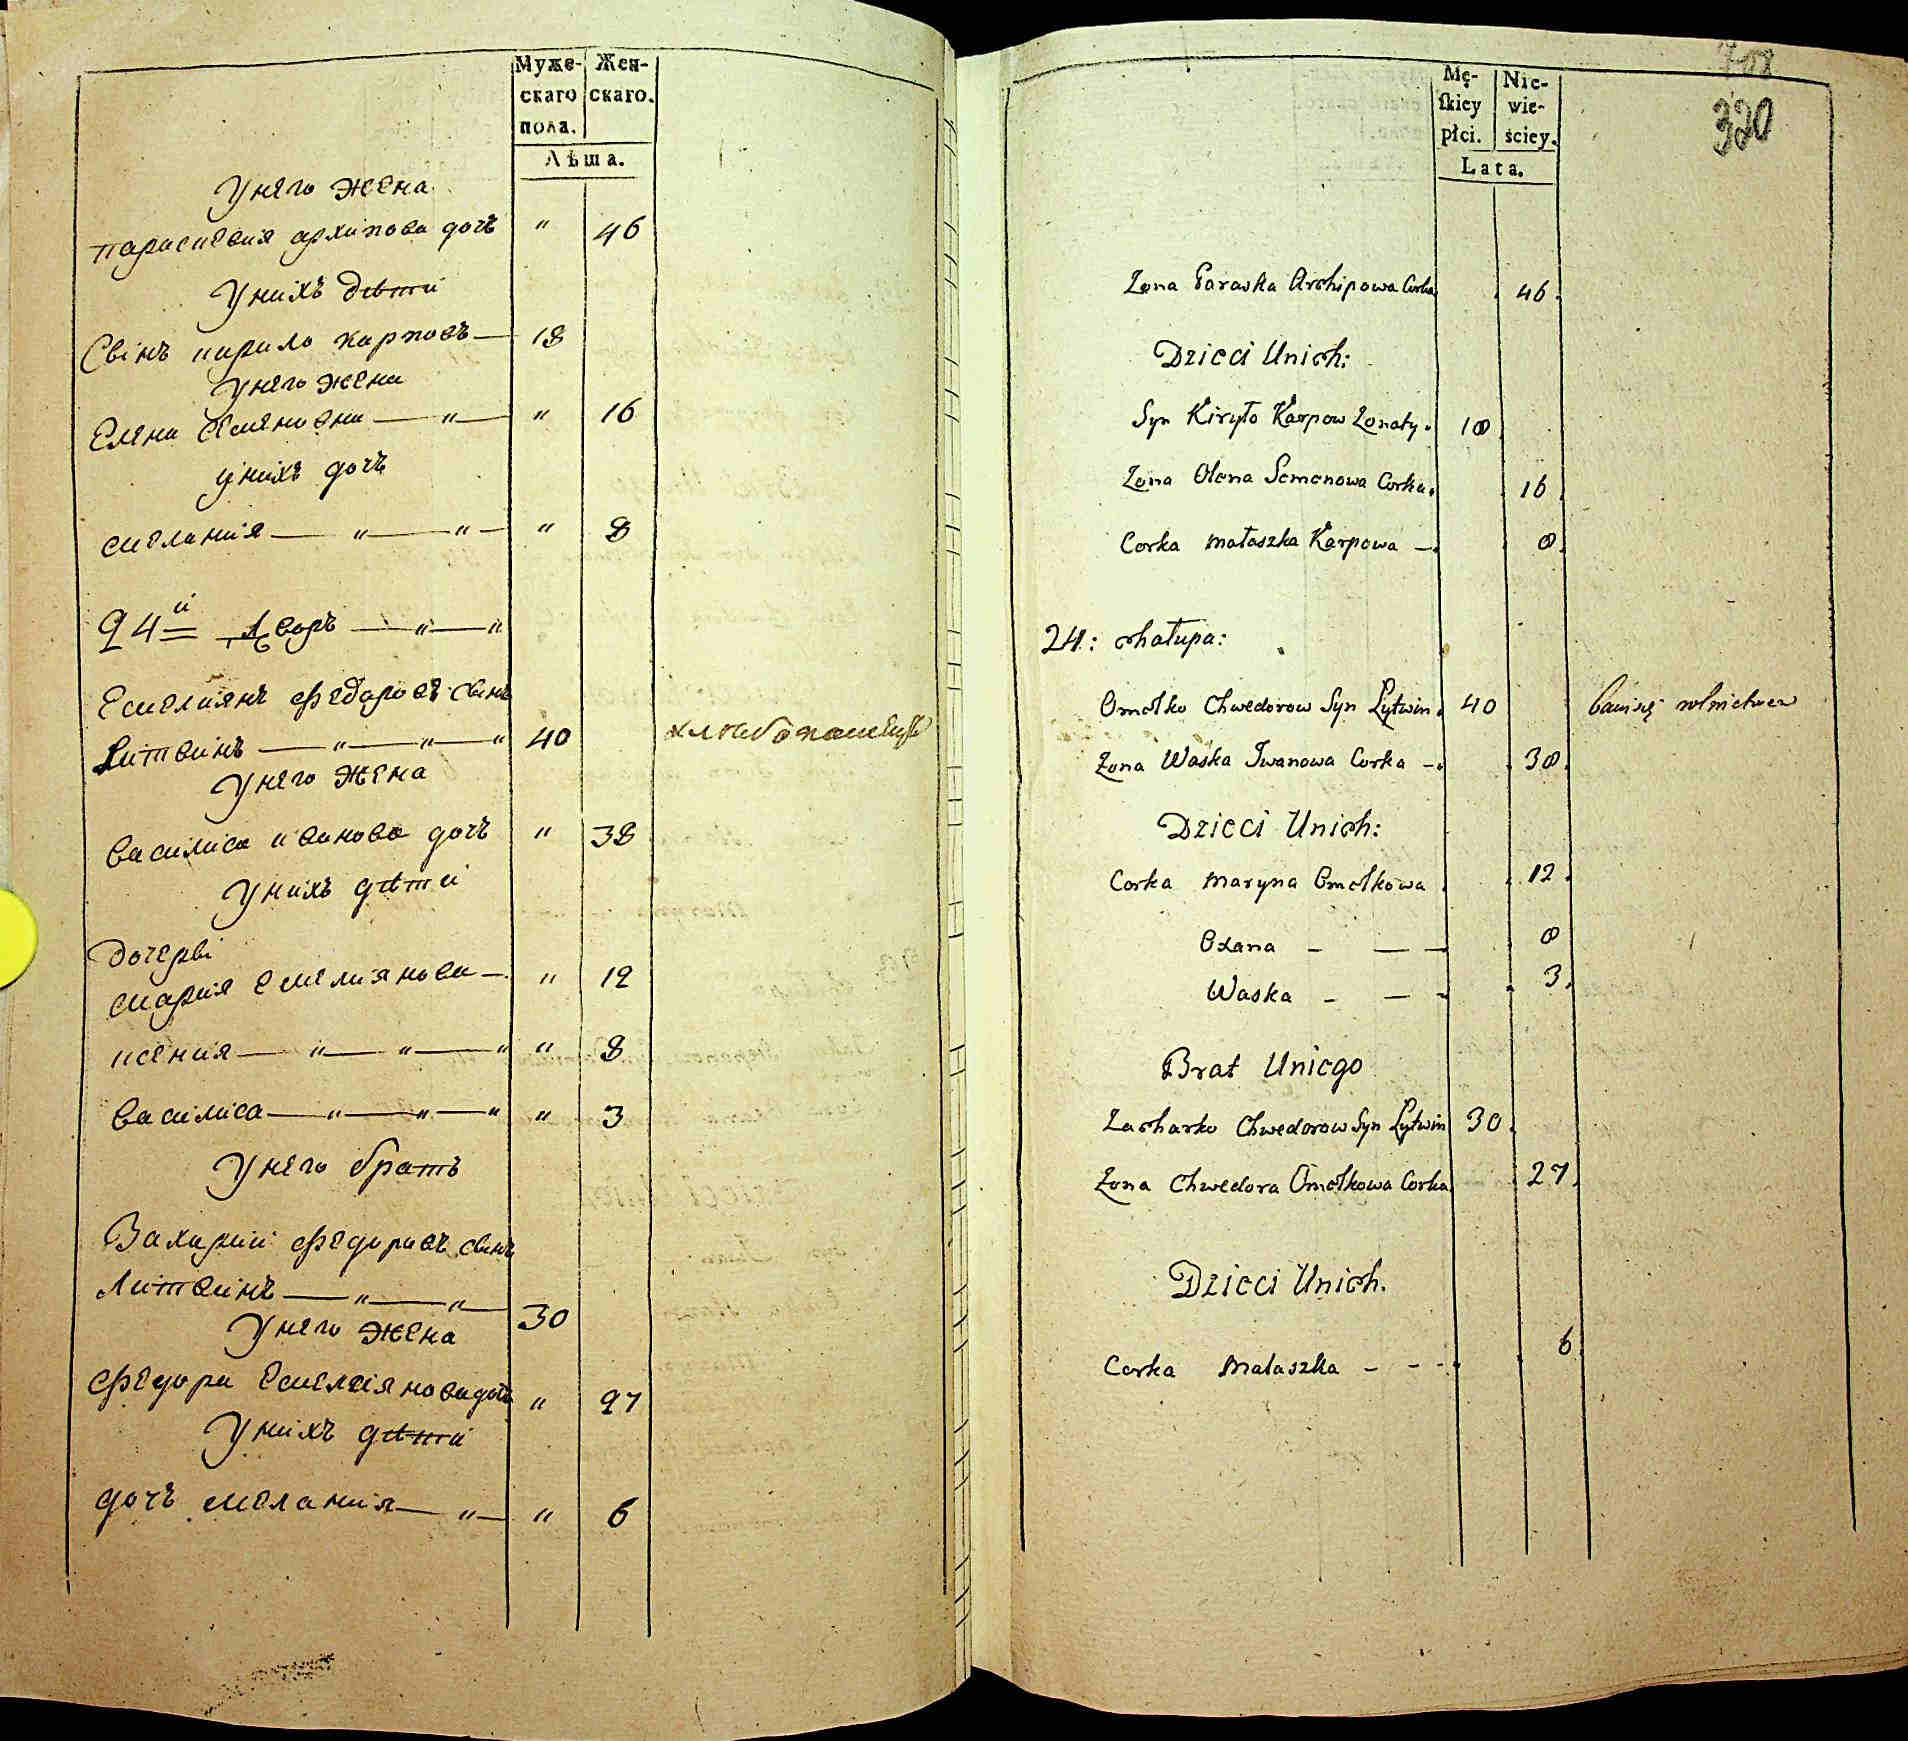 Муже-
скаго
пола.
Жен-
скаго.
Лѣта.
У него жена
параскевия архипова дочь " 46
У нихъ дѣти
Сынъ кирило карповъ — 18
У него жена
Елена Семеновна — " — " 16
у нихъ дочь
мелания — " — " — " 8
24й Дворъ — " — "
Емелиянъ федоровъ сынъ
Литвинъ — " — " — " 40 хлѣбопашецъ
У него жена
василиса иванова дочь " 38
У нихъ дѣти
дочери
мария емелиянова — " 12
ксения — " — " — " " 8
василиса — " — " — " " 3
У него братъ
Захарий федоровъ сынъ
Литвинъ — " — " — 30
У него жена
федора Емелиянова дочь " 27
У нихъ дѣти
дочь мелания — " — " 6
320
Mę-
skiey
płci.
Nie-
wie-
ściey.
Lata.
Żona Paraska Archipowa Corka 46.
Dzieci Unich:
Syn Kiryło Karpow Żonaty. 18
Żona Olena Semenowa Corka. 16
Corka Małaszka Karpowa —. 8.
24: chałupa:
Omelko Chwedorow Syn Lytwin. 40 bawi się rolnictwem
Żona Waska Iwanowa Corka —. 38.
Dzieci Unich:
Corka Maryna Omelkowa . 12.
Oxana — — — 8
Waska — — — 3.
Brat Uniego
Zacharko Chwedorow Syn Lytwin 30.
Żona Chwedora Omelkowa Corka 27.
Dzieci Unich.
Corka Małaszka — - - 6.